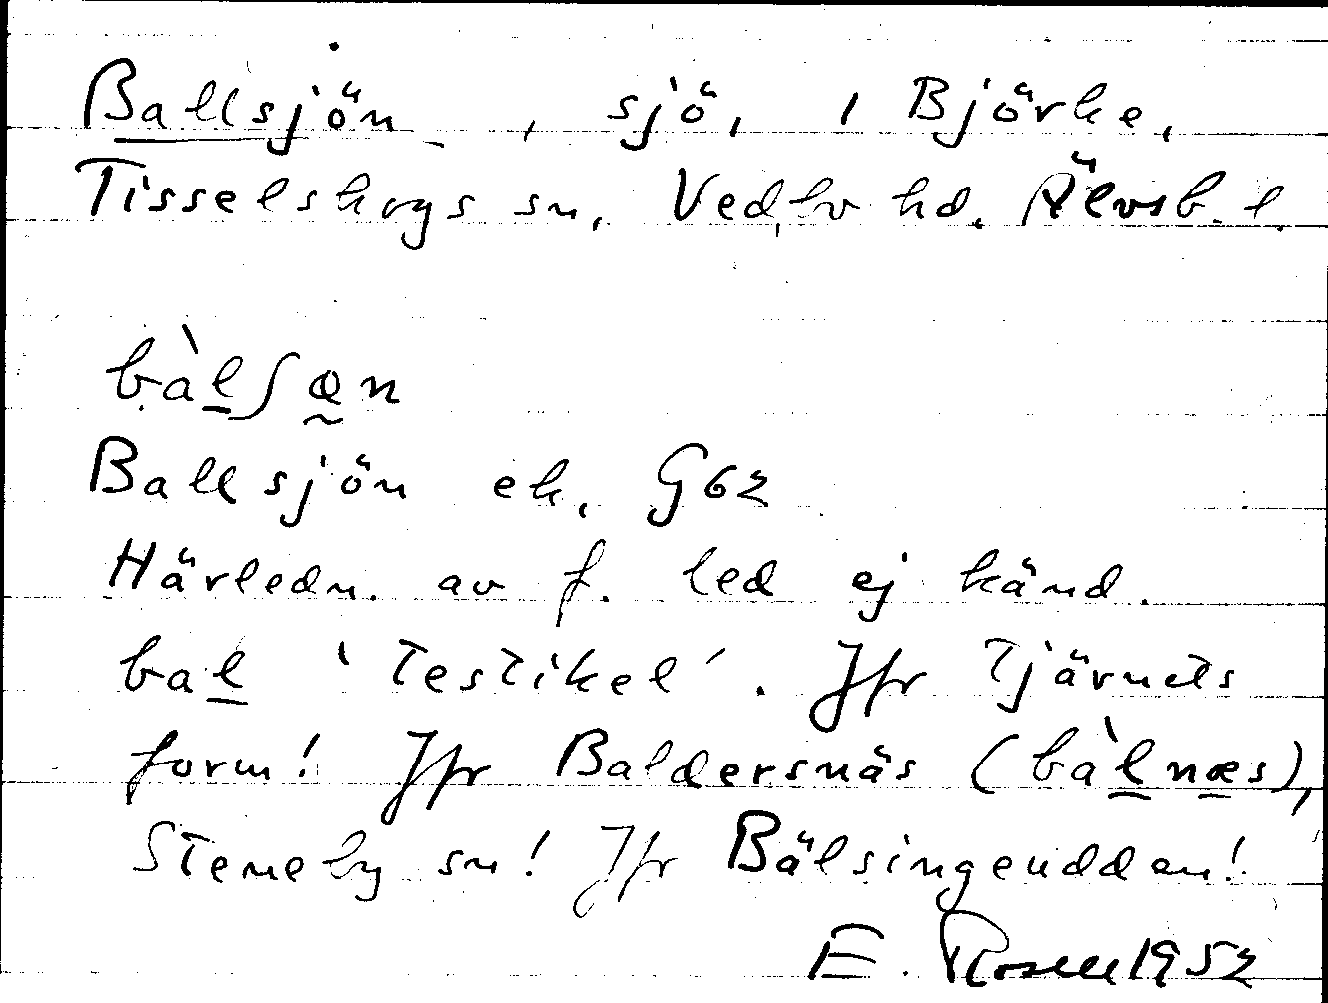 Ballsjön, sjö, i Björke,
Tisselskogs sn, Vedbo hd. Älvsb. l.
bàlʃæn
Ballsjön ek. G62
Härledn. av f. led ej känd.
bal 'testikel'. Jfr tjärnets
form! Jfr Baldersnäs (bàlnæs),
Steneby sn! Jfr Bälsingeudden!
E. Rosell 1952